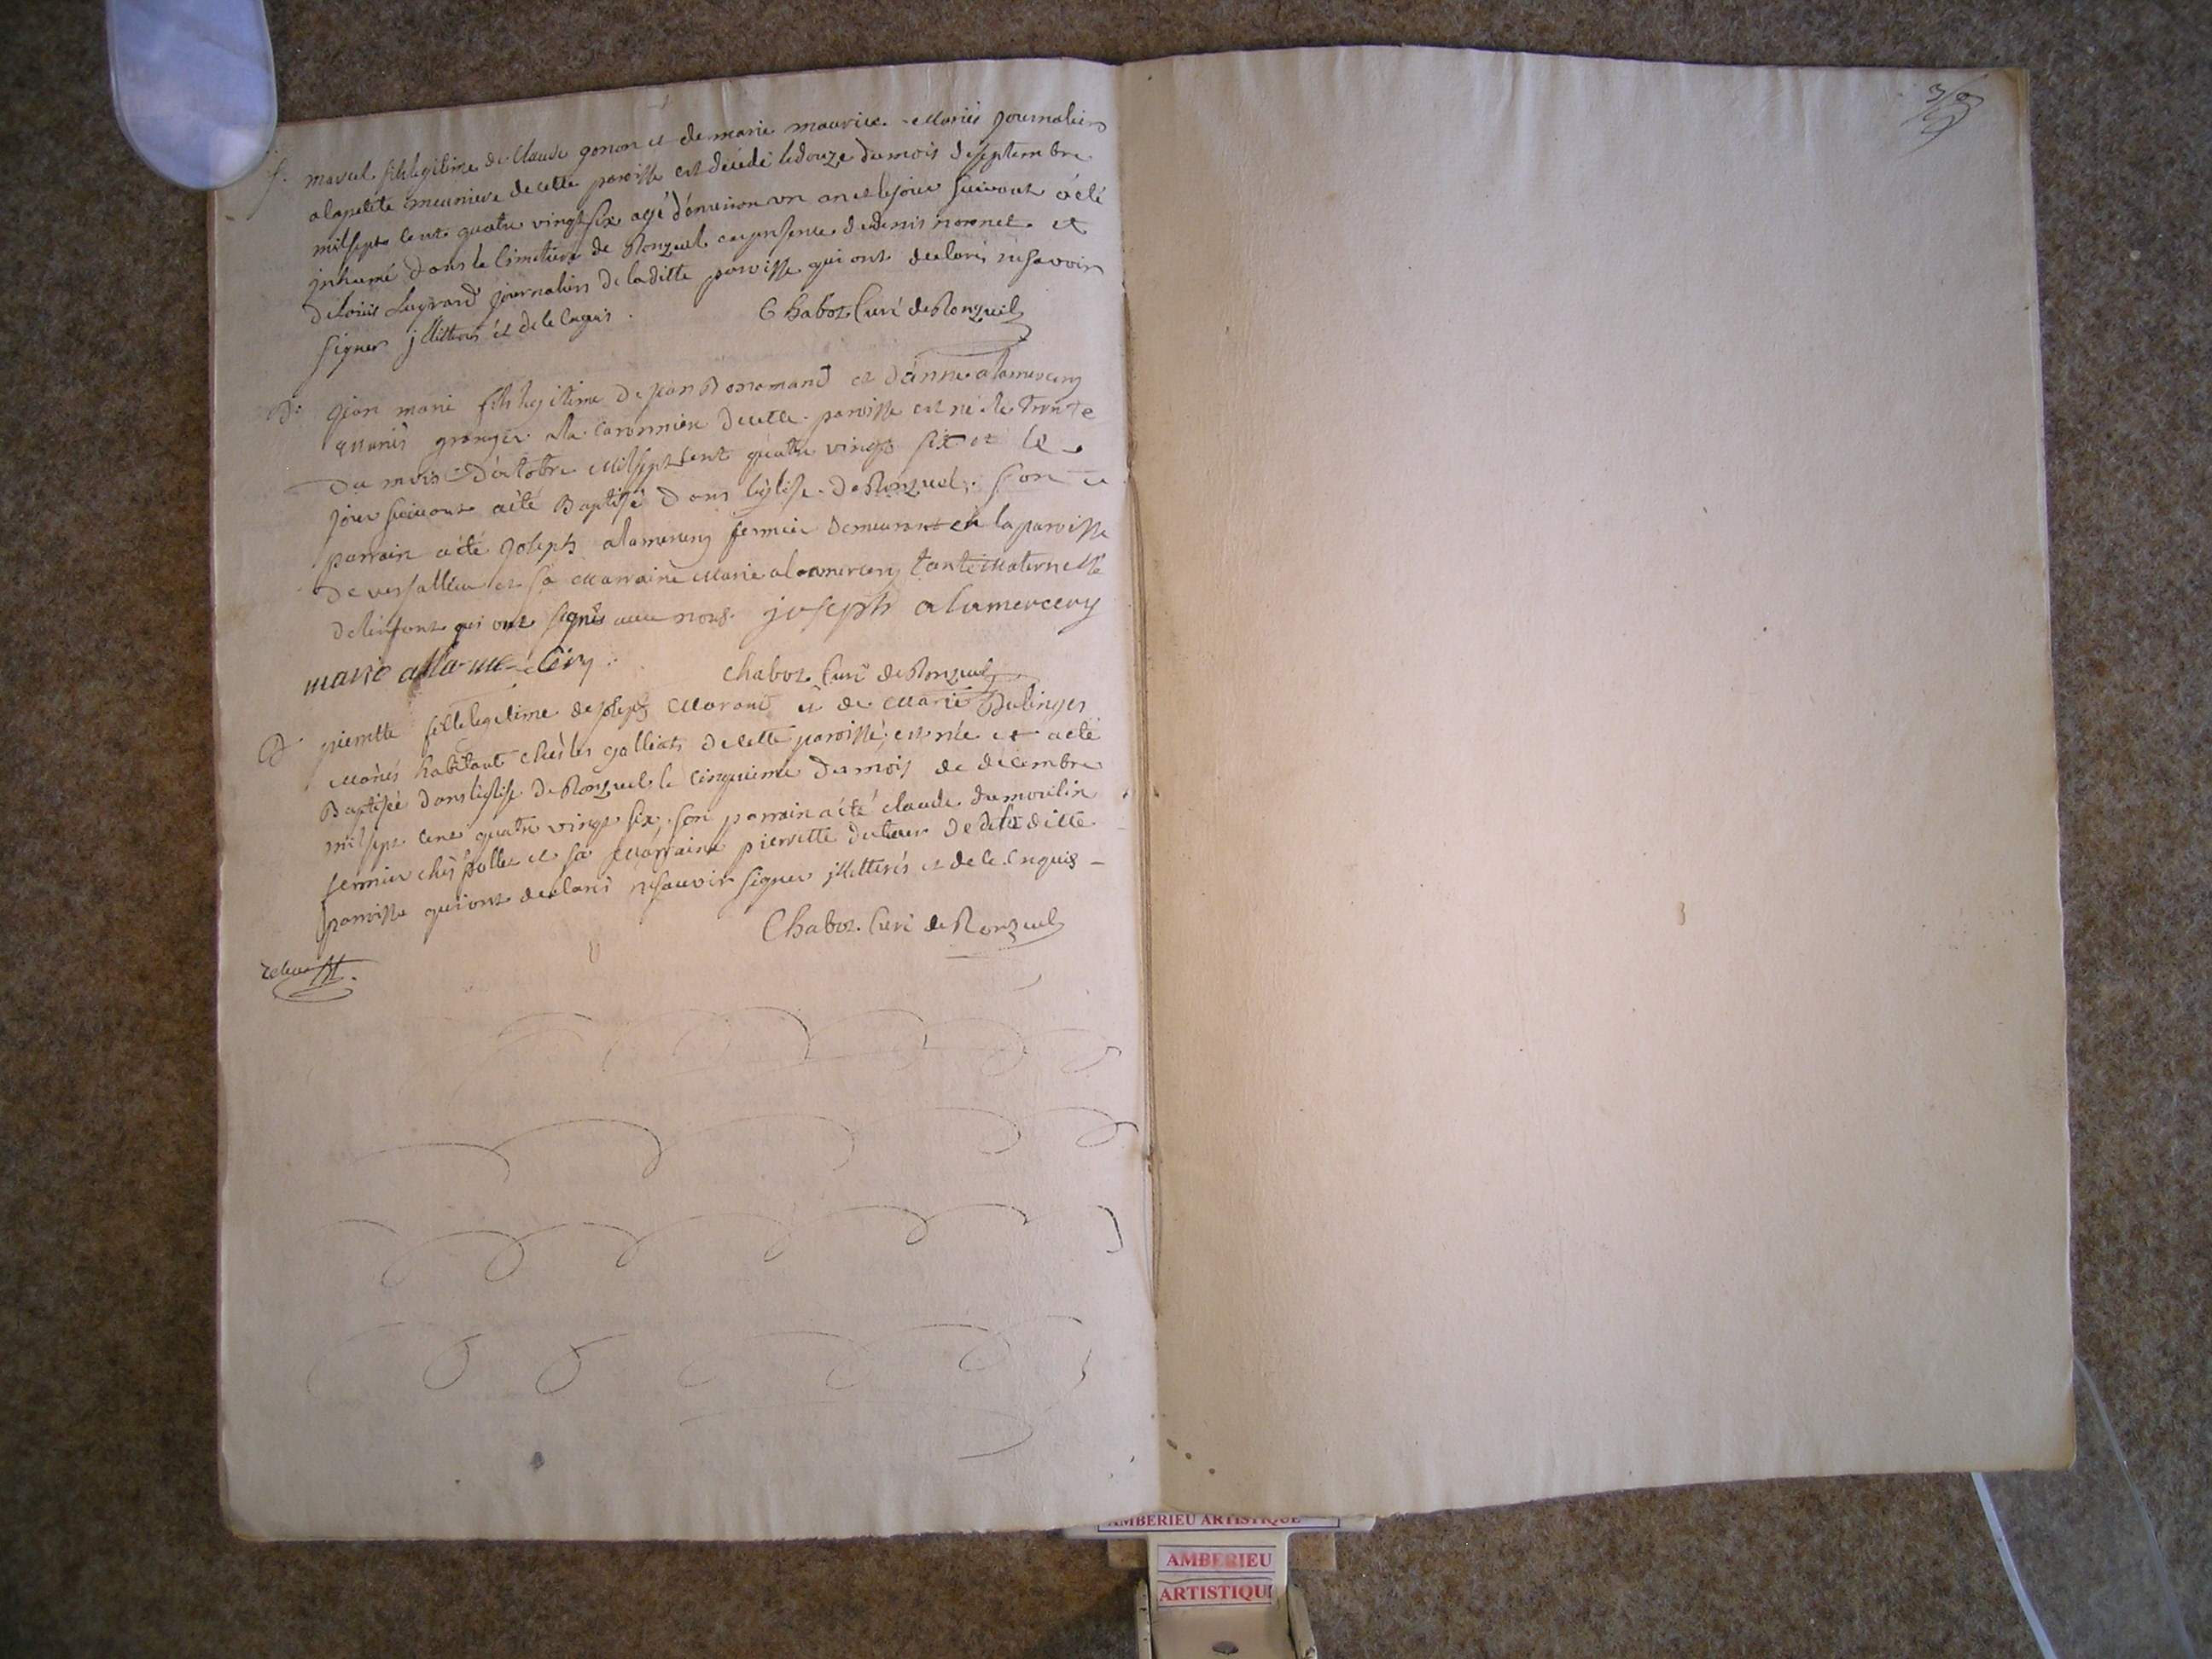 f. marcel fils legitime de Claude gonon et de marie maurice Mariés journaliers
a la petite meuniere de cette paroisse est décédé le douze du mois de septembre
mil sept cent quatre vingt six agé d'environ un an et le jour suivant a été
inhumé dans le Cimetiere de Ronzuel en presence de denis nonnet et
de Louis Lagrand journaliers de la ditte paroisse qui ont declarés ne savoir
signer illitterés et de ce Enquis. Chaboz Curé de Ronzuel
B. jean marie fils legitime de jean Bonamand et d'anne alamercery
Mariés granger a la Caronniere de cette paroisse est né le trente
du mois d'octobre Mil sept cent quatre vingt six et le
jour suivant a été Baptisé dans l'église de Ronzuel, son
parrain a été joseph alamercery fermier demeurant en la paroisse
de versailleux et sa Marraine Marie alamercery tante Maternelle
de l'enfant qui ont signés avec nous. joseph alamercery
marie allamercery. Chaboz Curé de Ronzuel
B pierrette fille legitime de joseph Morand et de Marie
Mariés habitant chés les galliats de cette paroisse, est née et a été
Baptisée dans l'église de Ronzuel le cinquieme du mois de decembre
mil sept cent quatre vingt six, son parrain a été claude dumoulin
fermier chés pollet et sa Marraine pierrette de la ditte
paroisse qui ont declarés ne savoir signer illitterés et de ce Enquis
Chaboz Curé de Ronzuel
AMBERIEU ARTISTIQUE
AMBERIEU
ARTISTIQU